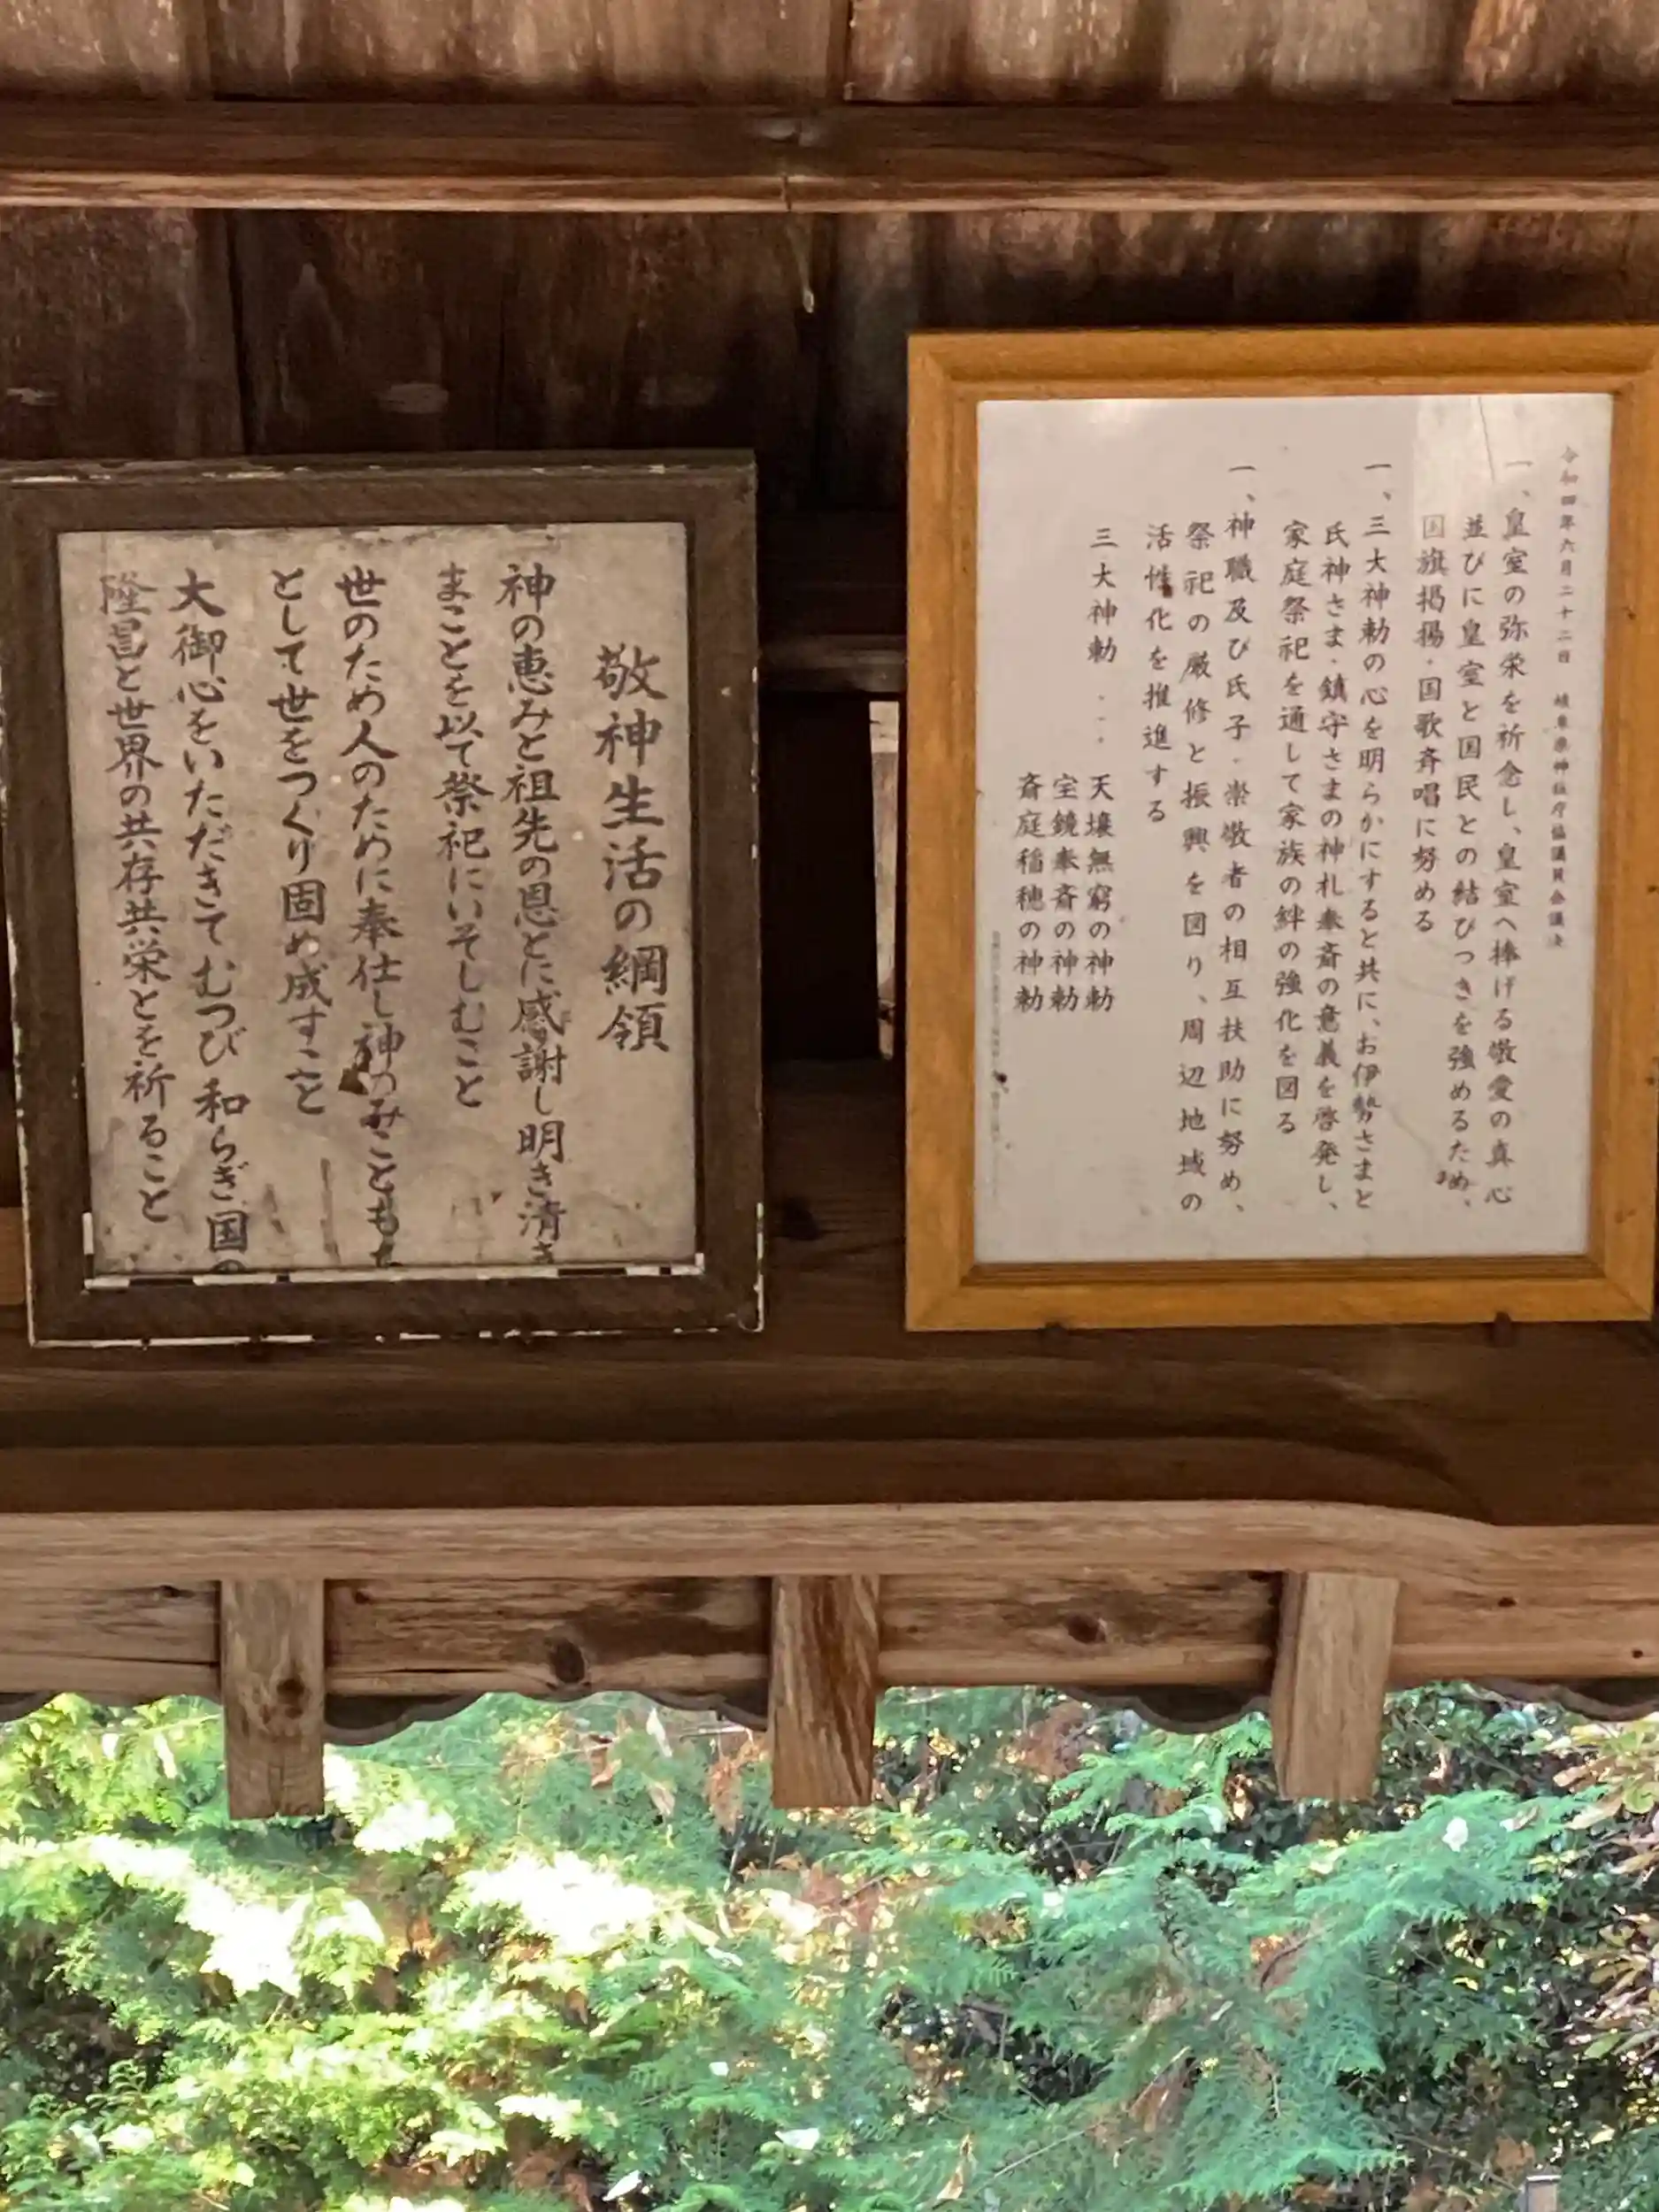 令和四年六月二十二日 岐阜県神社庁協議員会議決
一、皇室の弥栄を祈念し、皇室へ捧げる敬愛の真心
並びに皇室と国民との結びつきを強めるため、
国旗掲揚・国歌斉唱に努める
一、三大神勅の心を明らかにすると共に、お伊勢さまと
氏神さま・鎮守さまの神札奉斎の意義を啓発し、
家庭祭祀を通して家族の絆の強化を図る
一、神職及び氏子・崇敬者の相互扶助に努め、
祭祀の厳修と振興を図り、周辺地域の
活性化を推進する
三大神勅 ・・・ 天壌無窮の神勅
宝鏡奉斎の神勅
斎庭稲穂の神勅
敬神生活の綱領
神の恵みと祖先の恩とに感謝し明き清き
まことを以て祭祀にいそしむこと
世のため人のために奉仕し神のみこともち
として世をつくり固め成すこと
大御心をいただきてむつび和らぎ国の
隆昌と世界の共存共栄とを祈ること